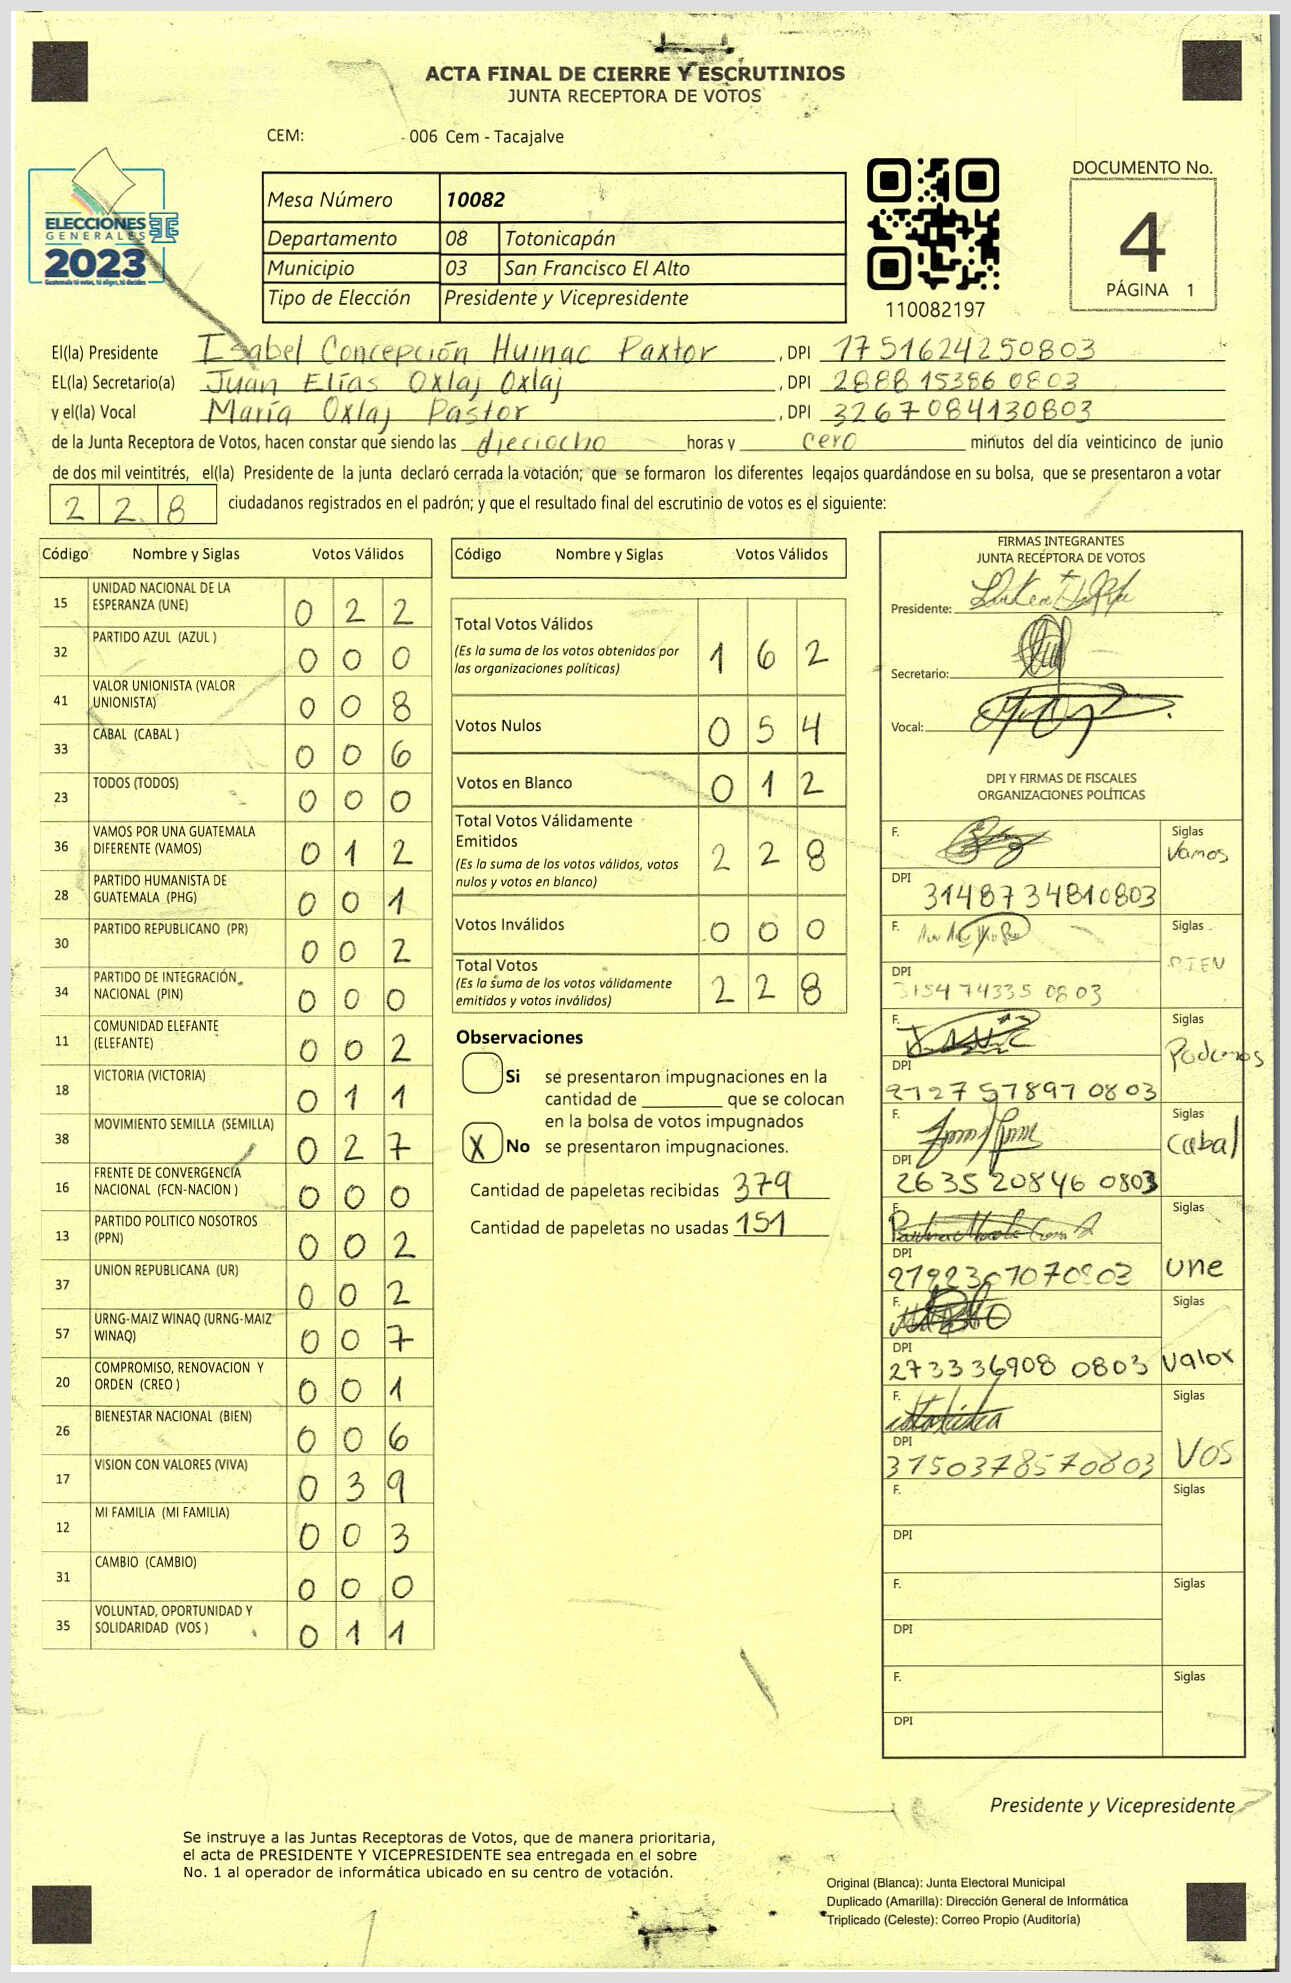 ACTA FINAL DE CIERRE Y ESCRUTINIOS
JUNTA RECEPTORA DE VOTOS
CEM: 006 Cem - Tacajalve
ELECCIONES
GENERALES
2023
Mesa Número 10082
Departamento 08 Totonicapán
Municipio 03 San Francisco El Alto
Tipo de Elección Presidente y Vicepresidente
110082197
DOCUMENTO No.
4
PÁGINA 1
El(la) Presidente Isabel Concepción Huinac Paxtor, DPI 1751624250803
EL(la) Secretario(a) Juan Elías Oxlaj Oxlaj, DPI 2888153860803
y el(la) Vocal María Oxlaj Pastor, DPI 3267084130803
de la Junta Receptora de Votos, hacen constar que siendo las dieciocho horas y cero minutos del día veinticinco de junio
de dos mil veintitrés, el(la) Presidente de la junta declaró cerrada la votación; que se formaron los diferentes legajos guardándose en su bolsa, que se presentaron a votar
228 ciudadanos registrados en el padrón; y que el resultado final del escrutinio de votos es el siguiente:
Código Nombre y Siglas Votos Válidos
15 UNIDAD NACIONAL DE LA ESPERANZA (UNE) 022
32 PARTIDO AZUL (AZUL ) 000
41 VALOR UNIONISTA (VALOR UNIONISTA) 008
33 CABAL (CABAL ) 006
23 TODOS (TODOS) 000
36 VAMOS POR UNA GUATEMALA DIFERENTE (VAMOS) 012
28 PARTIDO HUMANISTA DE GUATEMALA (PHG) 001
30 PARTIDO REPUBLICANO (PR) 002
34 PARTIDO DE INTEGRACIÓN NACIONAL (PIN) 000
11 COMUNIDAD ELEFANTE (ELEFANTE) 002
18 VICTORIA (VICTORIA) 011
38 MOVIMIENTO SEMILLA (SEMILLA) 027
16 FRENTE DE CONVERGENCIA NACIONAL (FCN-NACION ) 000
13 PARTIDO POLITICO NOSOTROS (PPN) 002
37 UNION REPUBLICANA (UR) 002
57 URNG-MAIZ WINAQ (URNG-MAIZ WINAQ) 007
20 COMPROMISO, RENOVACION Y ORDEN (CREO ) 001
26 BIENESTAR NACIONAL (BIEN) 006
17 VISION CON VALORES (VIVA) 039
12 MI FAMILIA (MI FAMILIA) 003
31 CAMBIO (CAMBIO) 000
35 VOLUNTAD, OPORTUNIDAD Y SOLIDARIDAD (VOS ) 011
Código Nombre y Siglas Votos Válidos
Total Votos Válidos 162
(Es la suma de los votos obtenidos por
las organizaciones políticas)
Votos Nulos 054
Votos en Blanco 012
Total Votos Válidamente
Emitidos 228
(Es la suma de los votos válidos, votos
nulos y votos en blanco)
Votos Inválidos 000
Total Votos 228
(Es la suma de los votos válidamente
emitidos y votos inválidos)
Observaciones
Si se presentaron impugnaciones en la
cantidad de ________ que se colocan
en la bolsa de votos impugnados
X No se presentaron impugnaciones.
Cantidad de papeletas recibidas 379
Cantidad de papeletas no usadas 151
FIRMAS INTEGRANTES
JUNTA RECEPTORA DE VOTOS
Presidente:
Secretario:
Vocal:
DPI Y FIRMAS DE FISCALES
ORGANIZACIONES POLÍTICAS
F. Siglas Vamos
DPI 3148734810803
F. Siglas BIEN
DPI 3154743350803
F. Siglas Podemos
DPI 2127578970803
F. Siglas Cabal
DPI 2635208460803
F. Siglas une
DPI 2792307070803
F. Siglas Valor
DPI 2733369080803
F. Siglas VOS
DPI 3750378570803
F. Siglas
DPI
F. Siglas
DPI
F. Siglas
DPI
Presidente y Vicepresidente
Se instruye a las Juntas Receptoras de Votos, que de manera prioritaria,
el acta de PRESIDENTE Y VICEPRESIDENTE sea entregada en el sobre
No. 1 al operador de informática ubicado en su centro de votación.
Original (Blanca): Junta Electoral Municipal
Duplicado (Amarilla): Dirección General de Informática
Triplicado (Celeste): Correo Propio (Auditoría)